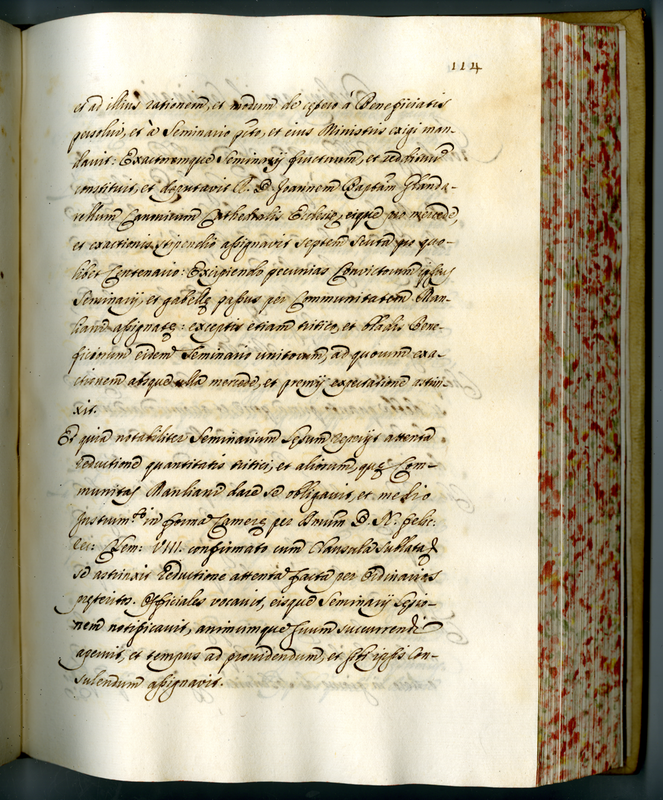 114
et ad illius rationem, et modum de cetero à Beneficiatis
persolui, et à Seminario p̄to, et eius Ministris exigi man-
dauit. Exactoremque Seminarij fructuum, et reddituum
constituit, et deputauit D. Joannem Baptām Gland&-
rellum Canonicum Cathedralis Ecclesię, eique pro mercede,
et exactionis stipendio assignauit septem scuta pro quo-
libet Centenario: Excipiendo pecunias Conuictorum ipsius
Seminarij, et gabellę passus per Communitatem Man-
lianā assignatę: exceptis etiam tritico, et bladis Bene-
ficiorum eidem Seminario unitorum, ad quorum exa-
ctionem absque ulla mercede, et premij expectatione astrin-
xit.
Et quia notabiliter Seminarium Lesum reperijt attenta
reductione quantitatis tritici, et aliorum, quę Com-
munitas Manlianē dare se obligauit, et medio
Instrum.to in forma Camerę per D. N. felic:
rec: Clem: VIII. confirmato cum Clausula sublata
se astrinxit reductione attenta facta per Ordinarios
pręteritos. Officiales vocauit, eisque Seminarij Lesio-
nem notificauit, animumque suum succurrendi
aperuit, et tempus ad prouidendum, et sibi ipsis con-
sulendum assignauit.